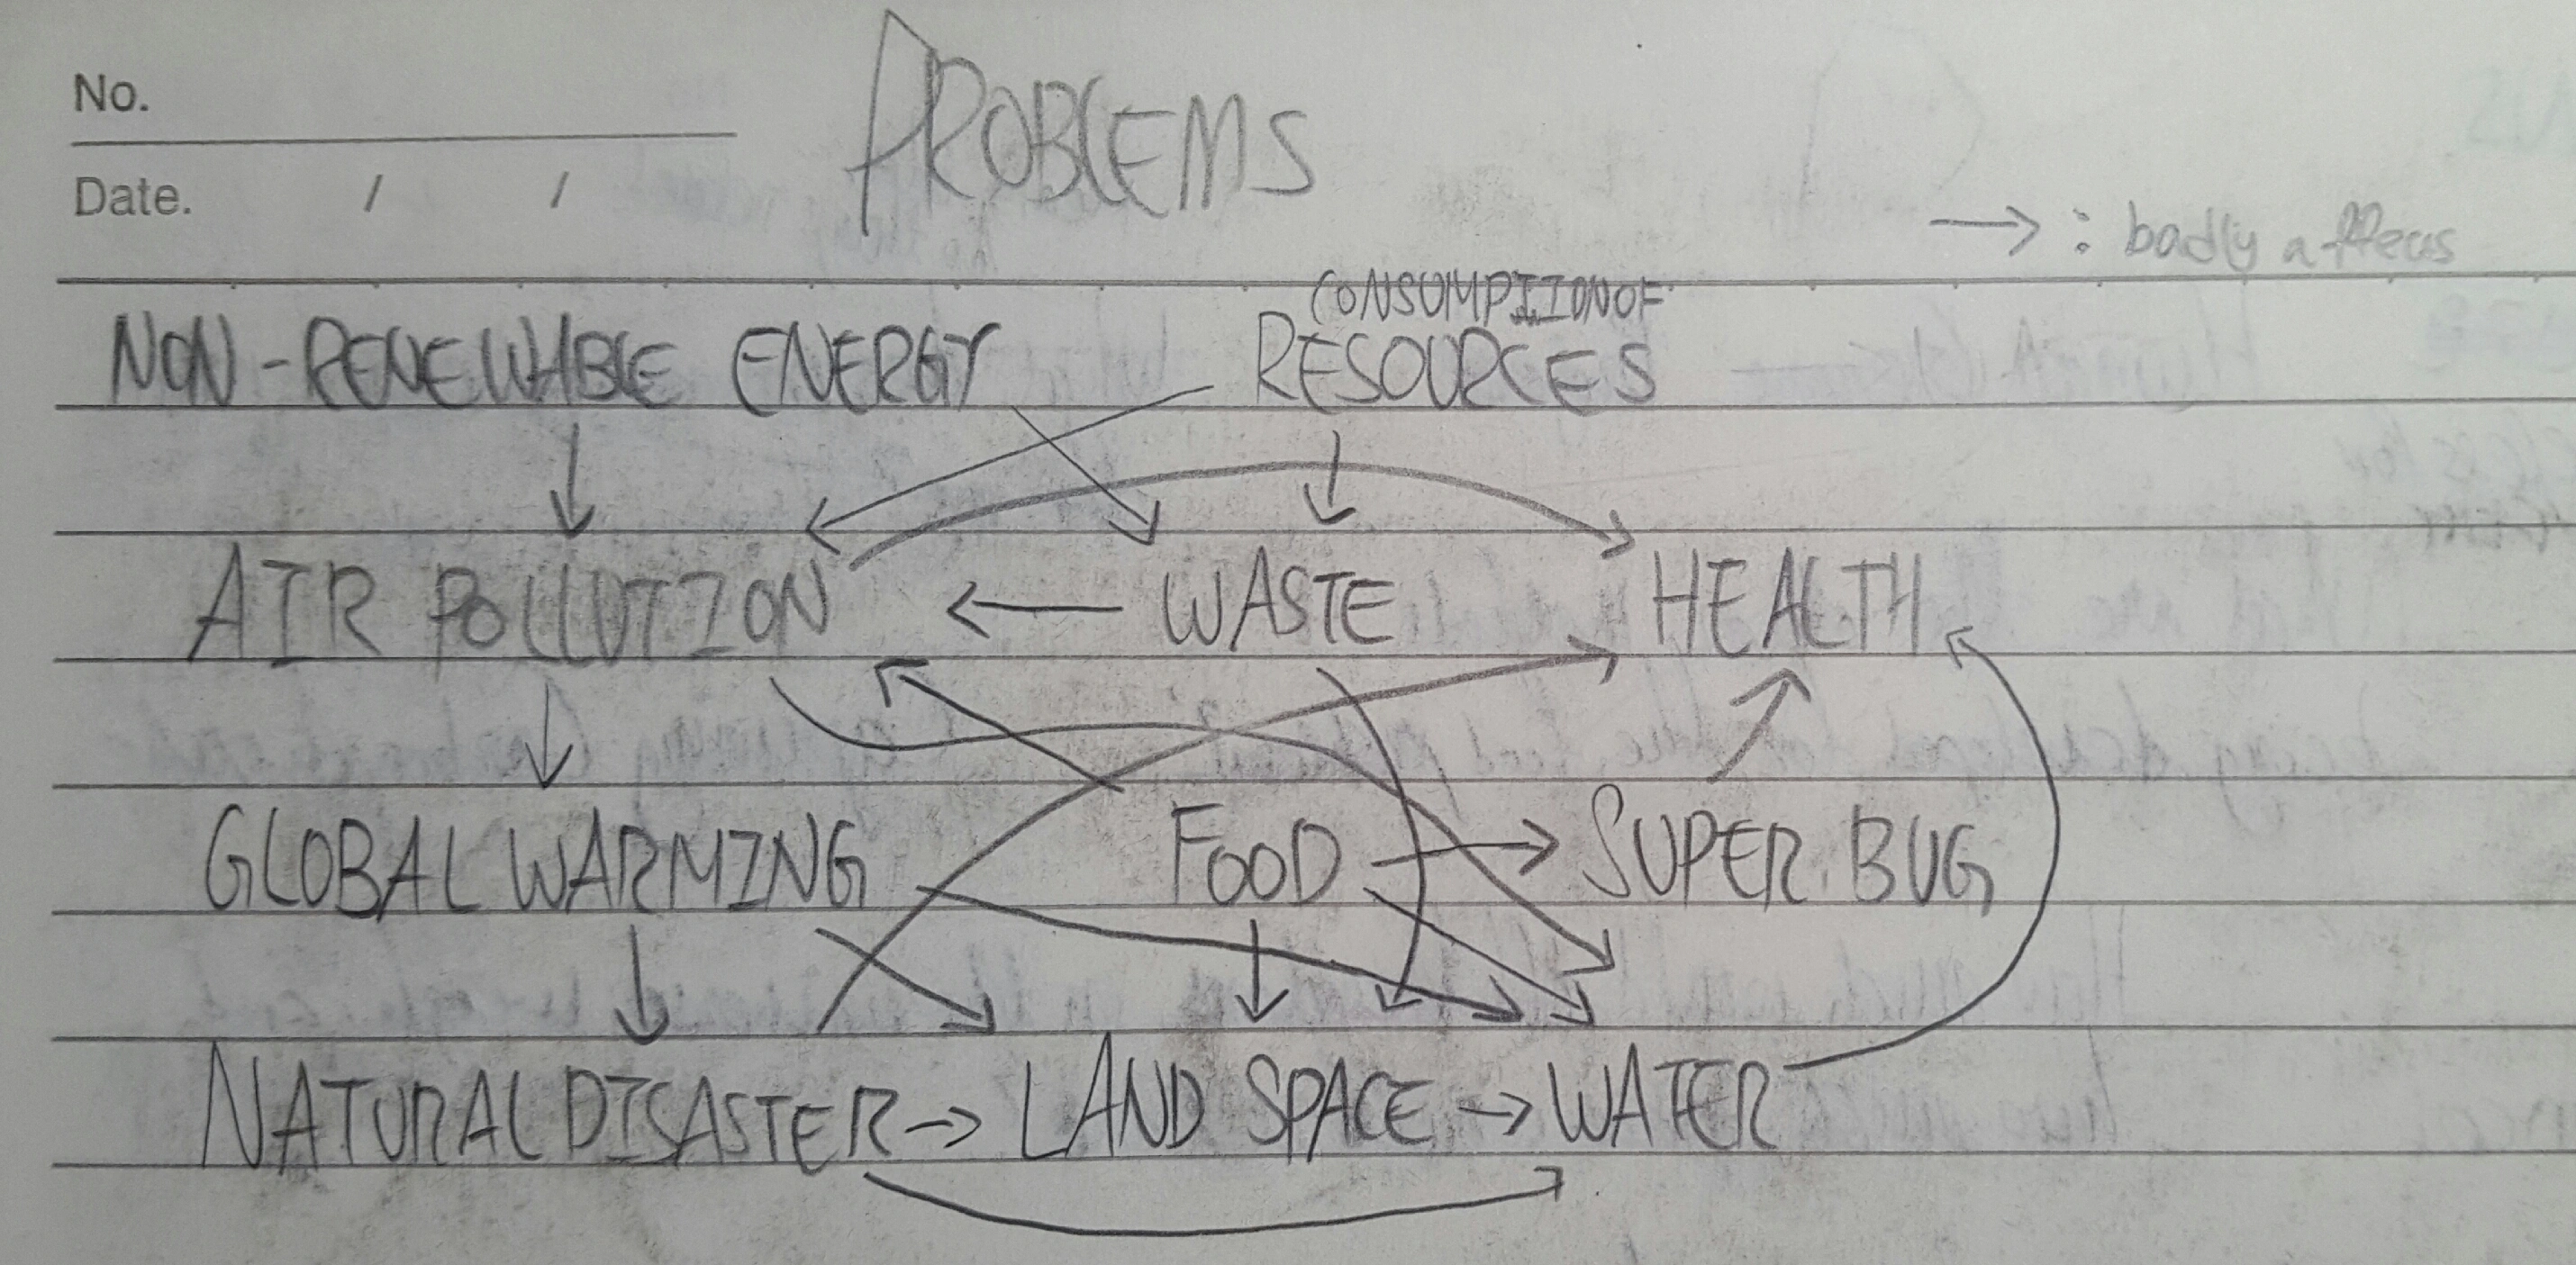 No.
PROBLEMS
Date. / /
→ : badly affects
NON-RENEWABLE ENERGY
CONSUMPTION OF
RESOURCES
AIR POLLUTION ← WASTE HEALTH
GLOBAL WARMING FOOD → SUPER BUG
NATURAL DISASTER → LAND SPACE → WATER